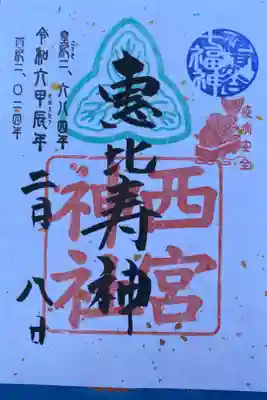 七福神
惠比寿神
西宮
神社
皇紀二、六八四年
令和六甲辰年
西紀二、〇二四年
二月 八日